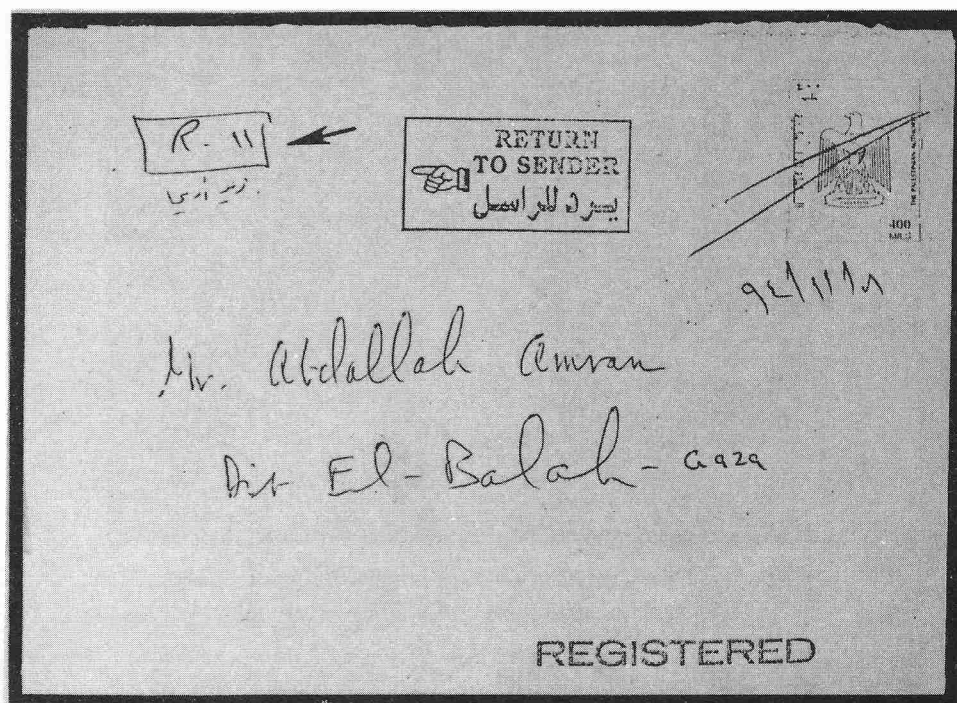 R. 11
RETURN
TO SENDER
يرد للراسل
٤٠٠
THE PALESTINIAN AUTHORITY
400
MILS
٩٤/١١/٨
Mr. Abdallah Amran
Dir El-Balah - Gaza
REGISTERED